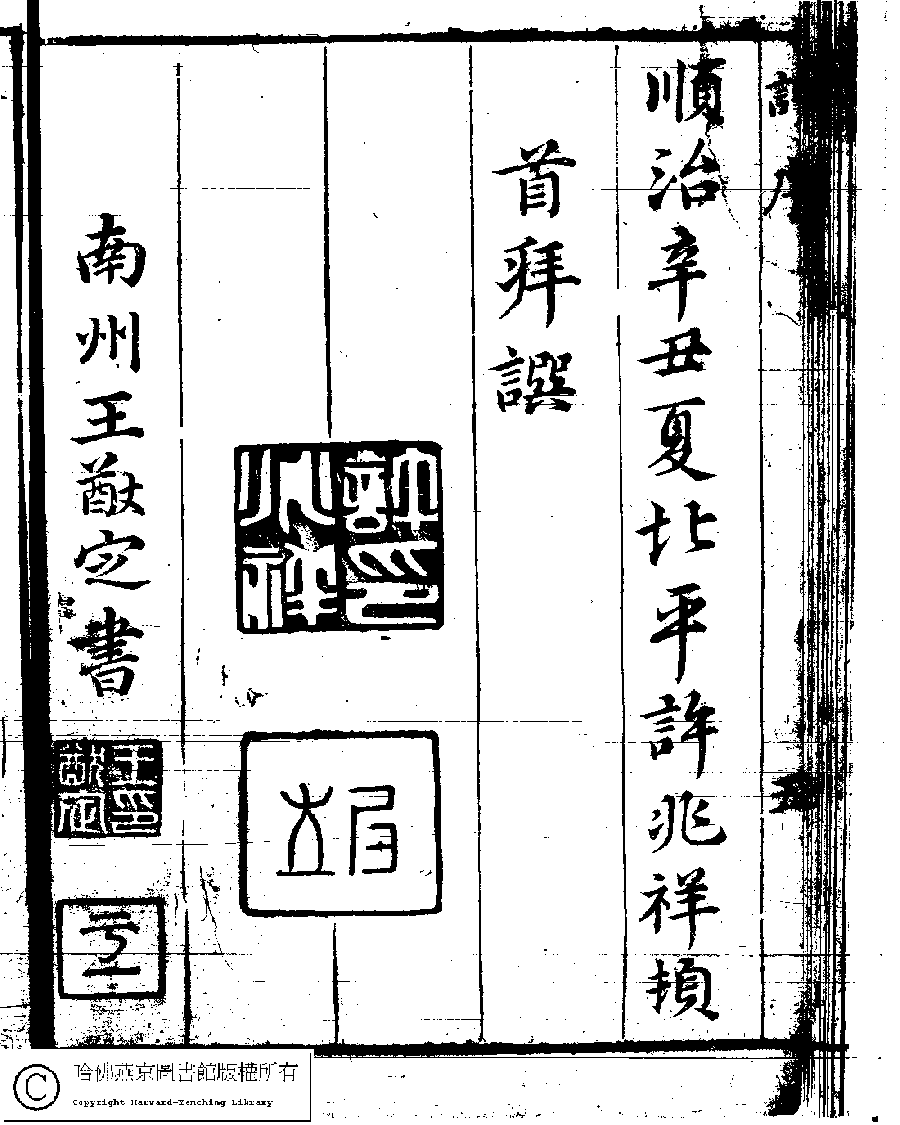 五
順治辛丑夏北平許兆祥頓
首拜譔
許印
兆祥
南州王猷定書
王印
猷定
于一
哈佛燕京圖書館版權所有
Copyright Harvard-Yenching Library